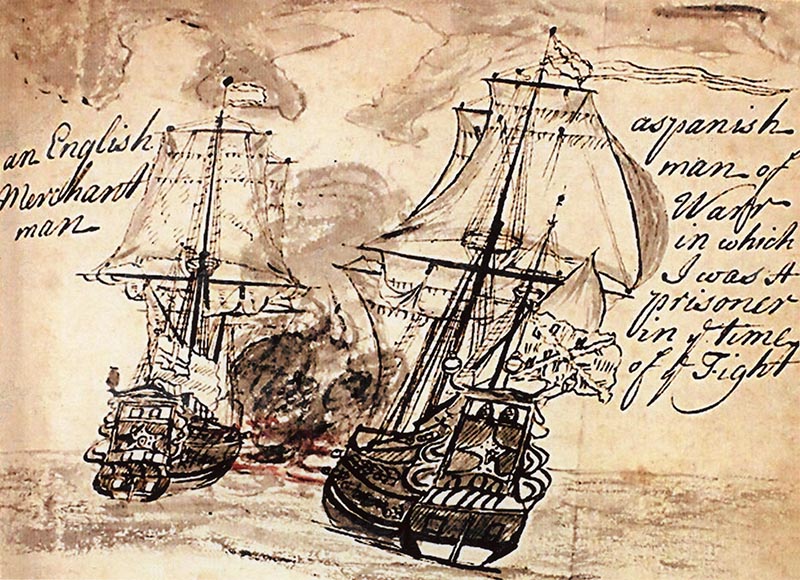 an English
Merchant
man
aspanish
man of
Warr
in which
I was A
prisoner
in ye time
of ye Fight